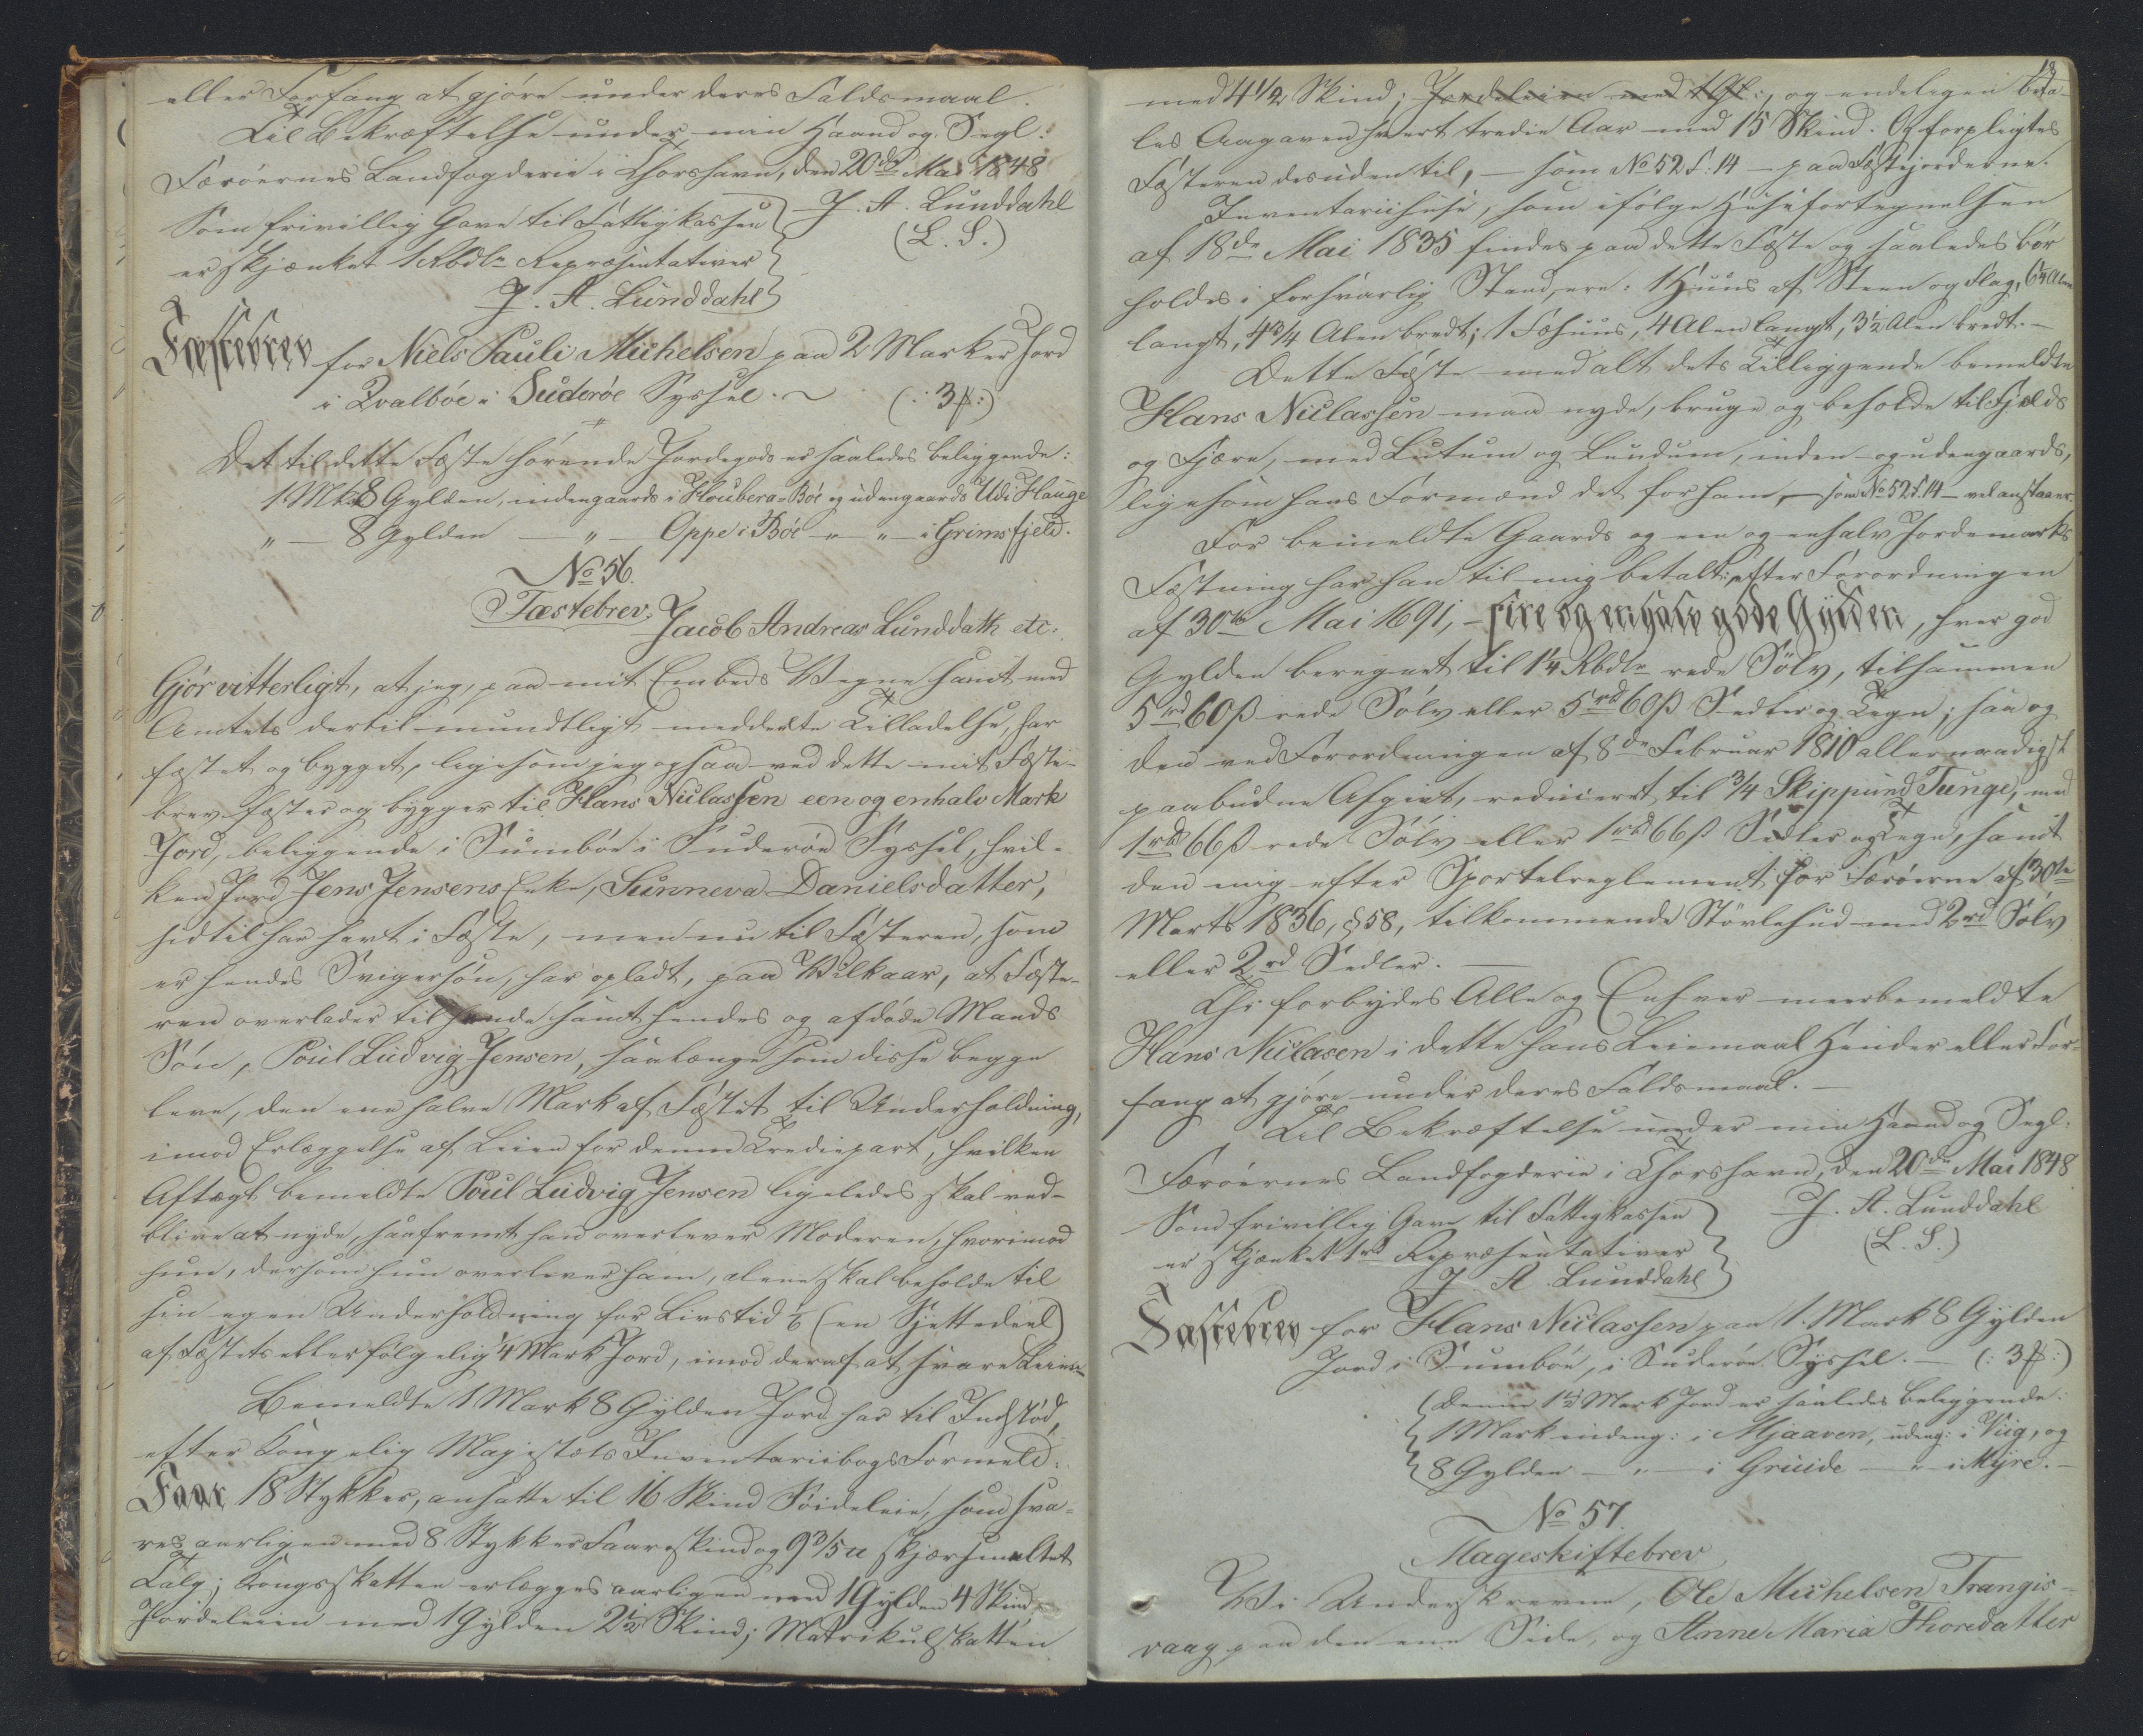 eller Forfang at gjöre under deres Faldsmaal.
Til Bekræftelse under min Haand og Segl.
Færöernes Landfogderie i Thorshavn, den 20de Mai 1848
J. A. Lunddahl
(L. S.)
Som frivillig Gave til Fattigkassen
er skjænket 1 Rbdlr Repræsentativer
J. A. Lunddahl
Fæstebrev for Niels Pauli Michelsen paa 2 Marker Jord
i Qvalböe i Suderöe Syssel. (: 3 ß:)
Det til dette Fæste hörende Jordegods er saaledes beliggende:
1 Mk 8 Gylden, indengaards i Houbera-Böe og udengaards Ude i Hauge
" — 8 Gylden — " — Oppe i Böe — " — " — i Grimsfjeld.
No 56.
Fæstebrev.
Jacob Andreas Lunddahl etc.
Gjör vitterligt, at jeg, paa mit Embeds Vegne samt med
Amtets dertil mundtligt meddeelte Tilladelse, har
fæstet og bygget, ligesom jeg ogsaa ved dette mit Fæste-
brev fæster og bygger til Hans Niclassen een og en halv Mark
Jord, beliggende i Sumböe i Suderöe Syssel, hvil-
ken Jord Jens Jensens Enke, Sunneva Danielsdatter,
hidtil har havt i Fæste, men nu til Fæsteren, som
er hendes Svigersön, har opladt, paa Vilkaar, at Fæste-
ren overlader til hende samt hendes og afdöde Mands
Sön, Poul Ludvig Jensen, saalænge som disse begge
leve, den ene halve Mark af Fæstet til Underholdning,
imod Erlæggelse af Leien for denne Trediepart, hvilken
Aftægt bemeldte Poul Ludvig Jensen ligeledes skal ved-
blive at nyde, saafremt han overlever Moderen, hvorimod
hun, dersom hun overlever ham, alene skal beholde til
sin egen Underholdning for Livstid 1/6 (en Sjettedeel)
af Fæstet eller fölgelig 1/4 Mark Jord, imod deraf at svare Leien.
Bemeldte 1 Mark 8 Gylden Jord har til Indstöd,
efter Kongelig Majestæts Inventariibogs Formeld:
Faar 18 Stykker, ansatte til 16 Skind Föideleie, som sva-
res aarligen med 8 Stykker Faareskind og 9 3/5 u skjærsmeltet
Talg; Kongsskatten erlægges aarligen med 1 Gylden 4 Skind,
Jordeleien med 1 Gylden 2 1/2 Skind; Matrikulskatten
18
med 4 1/2 Skind; Jordeleien med 1 Gl:, og endeligen beta-
les Aagaven hvert tredie Aar med 15 Skind. Og forpligtes
Fæsteren desuden til, — som No 52 S. 14 — paa Fæstejorderne.
Inventariihuse, som ifölge Husefortegnelsen
af 18de Mai 1835 findes paa dette Fæste og saaledes bör
holdes i forsvarlig Stand, ere: 1 Huus af Steen og Flag, 6 1/4 Alen
langt, 4 3/4 Alen bredt; 1 Fæhuus, 4 Alen langt, 3 1/2 Alen bredt.—
Dette Fæste med alt dets Tilliggende bemeldte
Hans Niclassen maa nyde, bruge og beholde til Fjelds
og Fjære, med Lutum og Lundum, inden- og udengaards,
ligesom hans Formænd det for ham, — som No 52 S. 14 — vel anstaaer.
For bemeldte Gaards og een og en halv Jordemarks
Fæstning har han til mig betalt: efter Forordningen
af 30te Mai 1691, — fire og en halv gode Gylden, hver god
Gylden beregnet til 1 1/4 Rbdlr rede Sölv, tilsammen
5 rd 60 ß rede Sölv eller 5 rd 60 ß Sedler og Tegn; saa og
den ved Forordningen af 8de Februar 1810 allernaadigst
paabudne Afgivt, reduceret til 3/4 Skippund Tunge, med
1 rd 66 ß rede Sölv eller 1 rd 66 ß Sedler og Tegn, samt
den mig efter Sportelreglement for Færöerne af 30te
Marts 1836, § 58, tilkommende Stövlehud med 2 rd Sölv
eller 2 rd Sedler. —
Thi forbydes Alle og Enhver meerbemeldte
Hans Niclasen i dette hans Leiemaal Hinder eller For-
fang at gjöre under deres Faldsmaal. —
Til Bekræftelse under min Haand og Segl.
Færöernes Landfogderie i Thorshavn, den 20de Mai 1848
J. A. Lunddahl
(L. S.)
Som frivillig Gave til Fattigkassen
er skjænket 1 rd Repræsentativer
J. A. Lunddahl
Fæstebrev for Hans Niclassen paa 1. Mark 8 Gylden
Jord i Sumböe, i Suderöe Syssel. — (: 3 ß:)
(Denne 1 1/2 Mark Jord er saaledes beliggende:
1 Mark indeng: i Mjaaven, udeng: i Viig, og
8 Gylden — " — i Gruide — " — i Myre. —
No 57.
Mageskiftebrev
Vi Underskrevne, Ole Michelsen Trangis-
vaag paa den ene Side, og Anne Maria Thoredatter